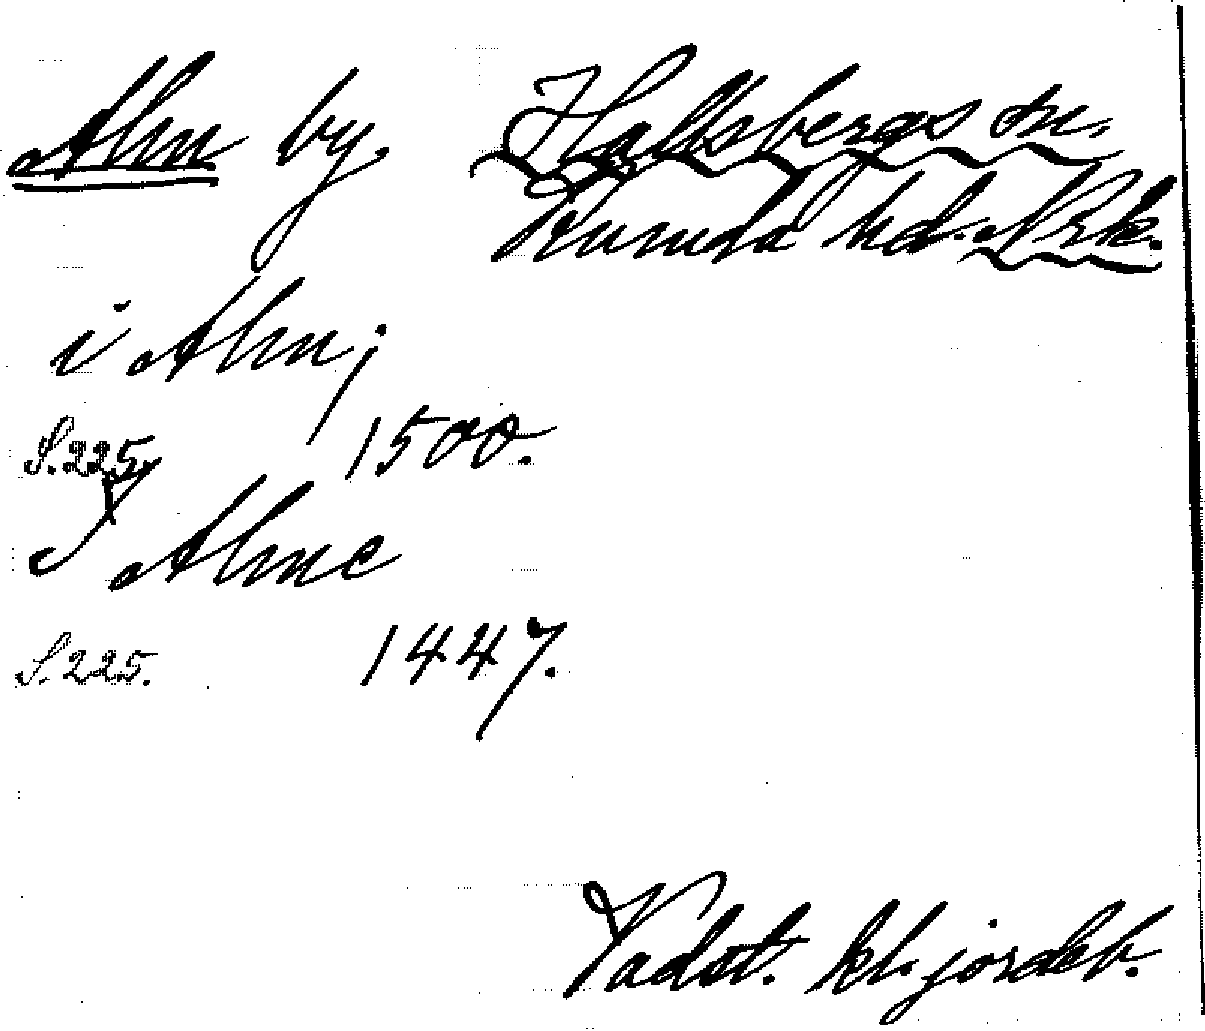 Alm by. Hallsbergs sn.
Kumla hd. Nrk.
i Alm;
S. 225. 1500.
J Alme
S. 225. 1447.
Vadst. kl. jordeb.